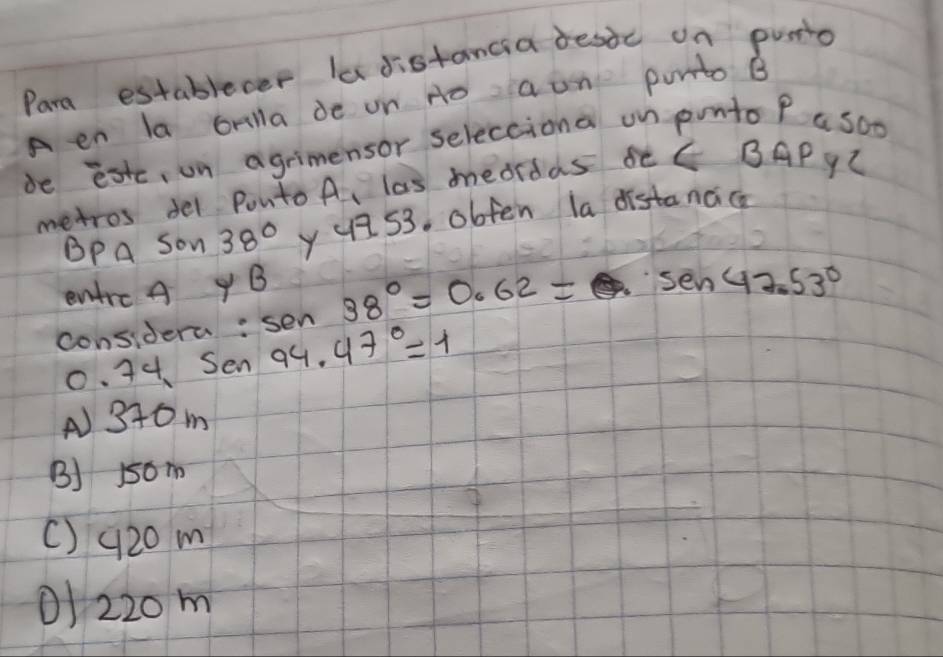 Para establecer la distancia desde un punto
A en la orilla de un río a un punto B
de éste, un agrimensor selecciona un punto P a 500
metros del Punto A, las medidas de < BAP y <
BPA son 38° y 47.53. obten la distancia
entre A y B
considera: sen 38° = 0.62 = sen 47.53°
0.74, Sen 94.47° = 1
A) 370 m
B) 150 m
C) 420 m
D) 220 m